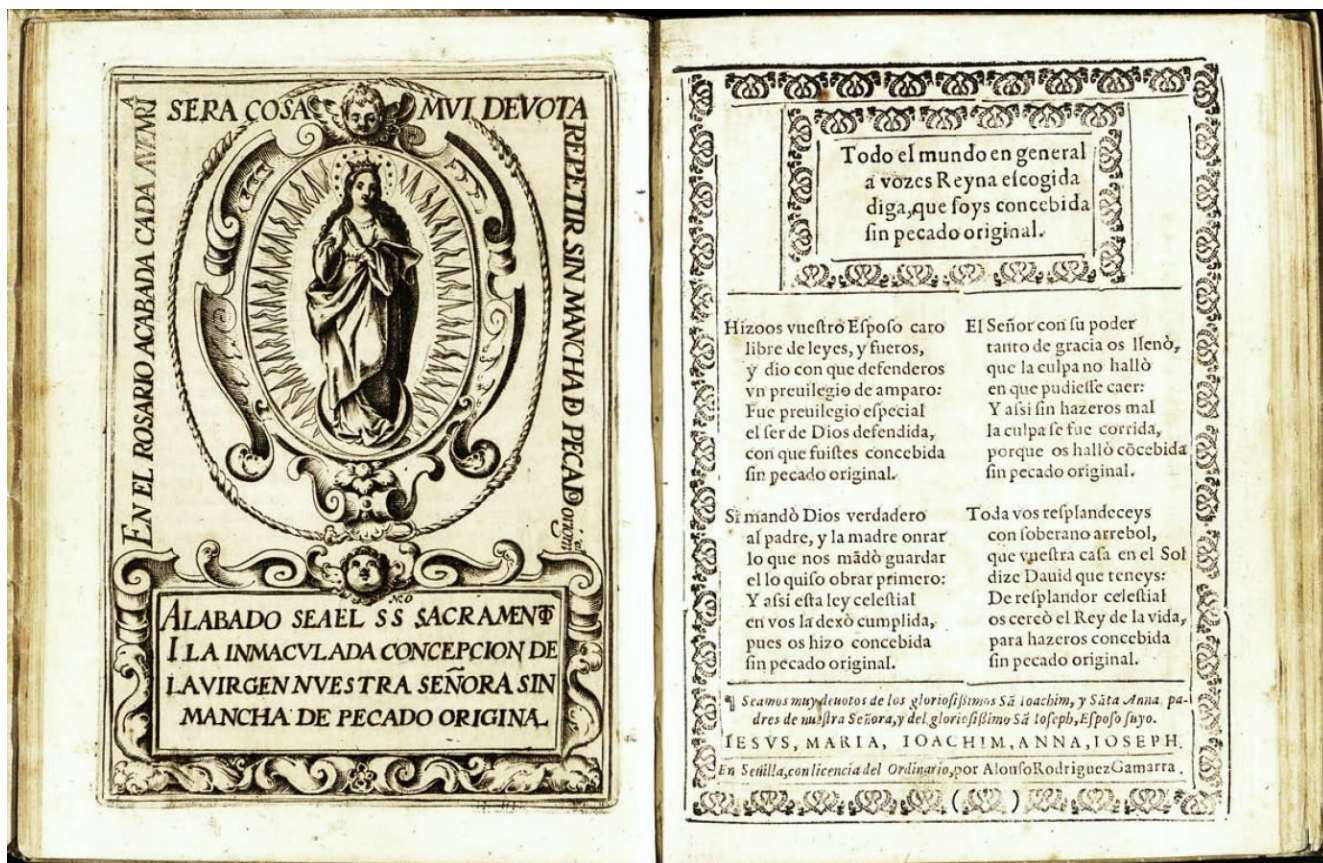 EN EL ROSARIO ACABADA CADA AVEMRĪA
SERA COSA MVI DEVOTA
REPETIR SIN MANCHA Đ PECADO original
ALABADO SEA EL SS SACRAMENTO
I LA INMACVLADA CONCEPCION DE
LA VIRGEN NVESTRA SEÑORA SIN
MANCHA DE PECADO ORIGINAL
Todo el mundo en general
a vozes Reyna eſcogida
diga, que ſoys concebida
ſin pecado original.
Hizoos vueſtro Eſpoſo caro
libre de leyes, y fueros,
y dio con que defenderos
vn preuilegio de amparo:
Fue preuilegio eſpecial
el ſer de Dios defendida,
con que fuiſtes concebida
ſin pecado original.
Si mandò Dios verdadero
al padre, y la madre onrar
lo que nos mādò guardar
el lo quiſo obrar primero:
Y aſsi eſta ley celeſtial
en vos la dexò cumplida,
pues os hizo concebida
ſin pecado original.
El Señor con ſu poder
tanto de gracia os llenò,
que la culpa no hallò
en que pudieſſe caer:
Y aſsi ſin hazeros mal
la culpa ſe fue corrida,
porque os hallò cōcebida
ſin pecado original.
Toda vos reſplandeceys
con ſoberano arrebol,
que vueſtra caſa en el Sol
dize Dauid que teneys:
De reſplandor celeſtial
os cercò el Rey de la vida,
para hazeros concebida
ſin pecado original.
¶ Seamos muy deuotos de los glorioſiſsimos Sā Ioachim, y Sāta Anna, pa-
dres de nueſtra Señora, y del glorioſiſsimo Sā Ioſeph, Eſpoſo ſuyo.
IESVS, MARIA, IOACHIM, ANNA, IOSEPH.
En Seuilla, con licencia del Ordinario, por Alonſo Rodriguez Gamarra.